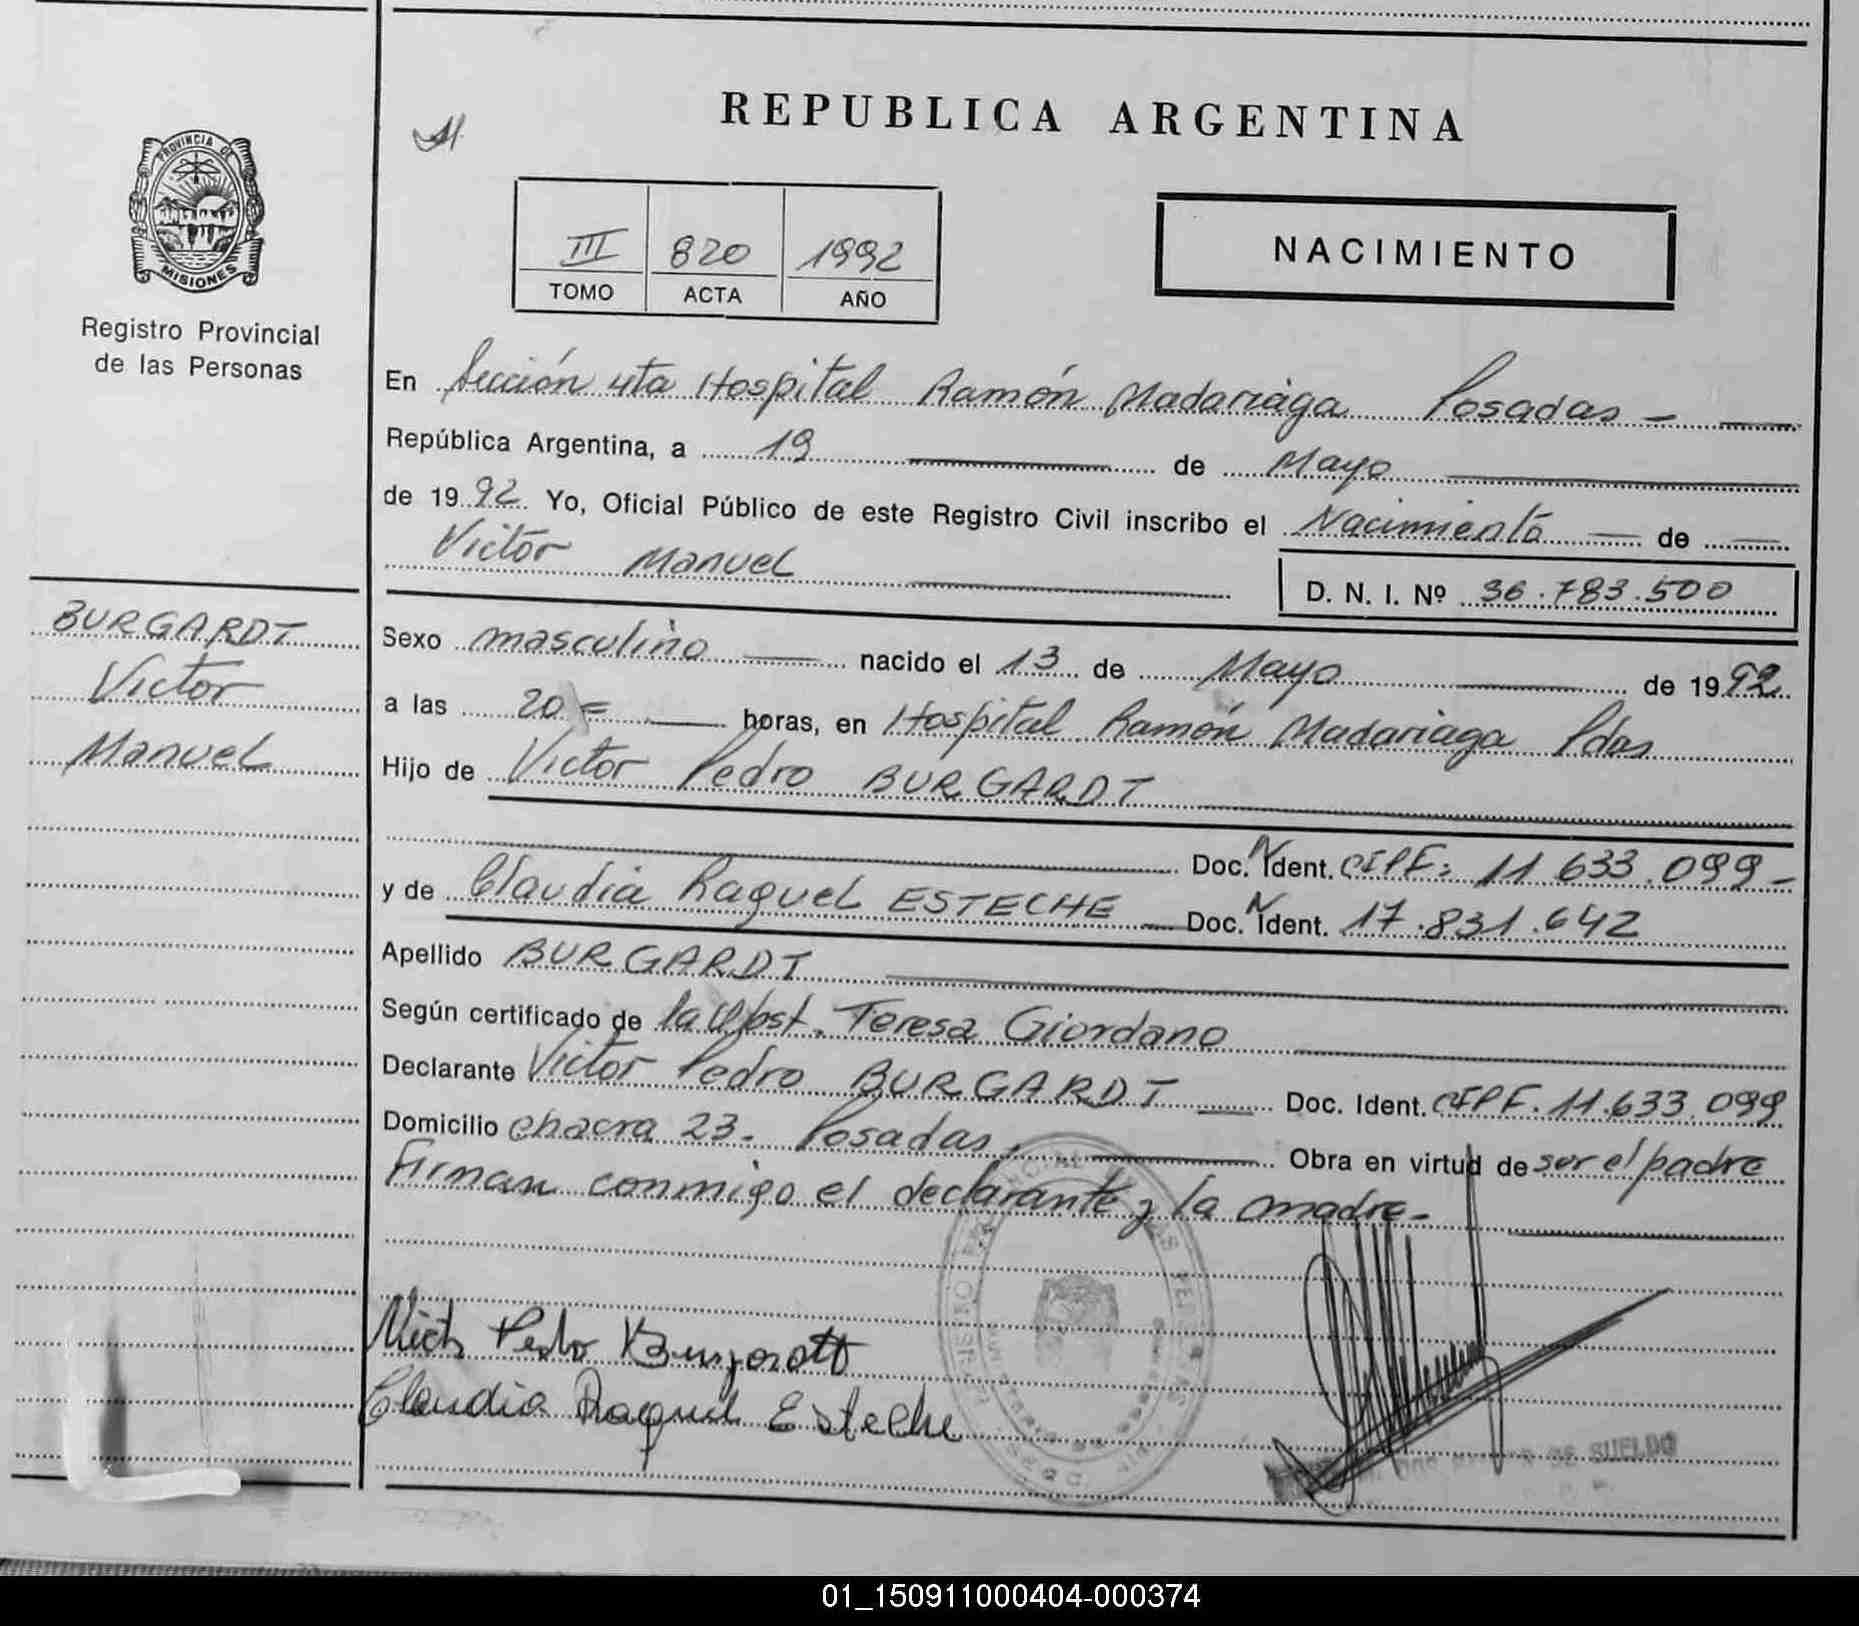 REPUBLICA ARGENTINA
PROVINCIA DE
MISIONES
Registro Provincial
de las Personas
III 820 1992
TOMO ACTA AÑO
NACIMIENTO
En Sección 4ta Hospital Ramón Madariaga Posadas -
República Argentina, a 19 de Mayo
de 1992 Yo, Oficial Público de este Registro Civil inscribo el Nacimiento de
Victor Manuel
D. N. I. Nº 36.783.500
BURGARDT
Victor
Manuel
Sexo masculino nacido el 13 de Mayo de 1992
a las 20 = horas, en Hospital Ramón Madariaga Pdas
Hijo de Victor Pedro BURGARDT
Doc. Ident. CIPF: 11.633.099-
y de Claudia Raquel ESTECHE - Doc. Ident. 17.831.642
Apellido BURGARDT
Según certificado de la Obst. Teresa Giordano
Declarante Victor Pedro BURGARDT Doc. Ident. CIPF. 11.633.099
Domicilio chacra 23. Posadas. Obra en virtud de ser el padre
Firman conmigo el declarante y la madre-
Pedro
Claudia Raquel Esteche
DE SUELDO
01_150911000404-000374